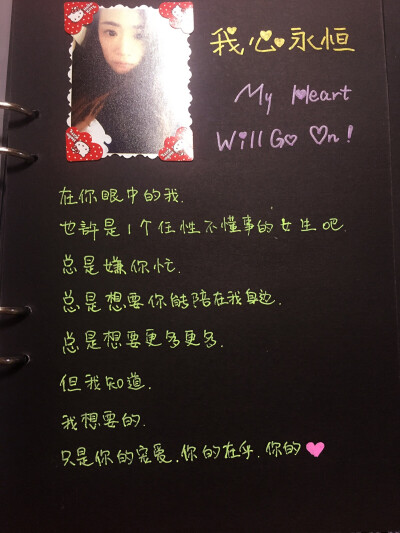 我心永恒
My Heart
Will Go On!
在你眼中的我.
也許是1个任性不懂事的女生吧.
总是嫌你忙.
总是想要你能陪在我身边.
总是想要更多更多.
但我知道.
我想要的.
只是你的宠爱.你的在乎.你的